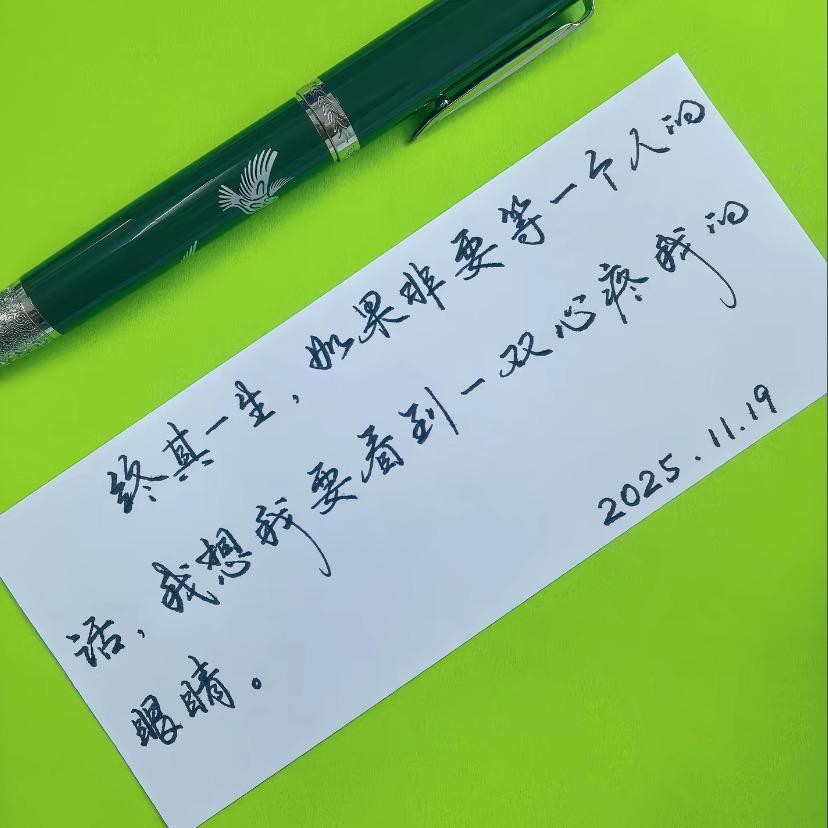 终其一生，如果非要等一个人的
话，我想我要看到一双心疼我的
眼睛。
2025.11.19